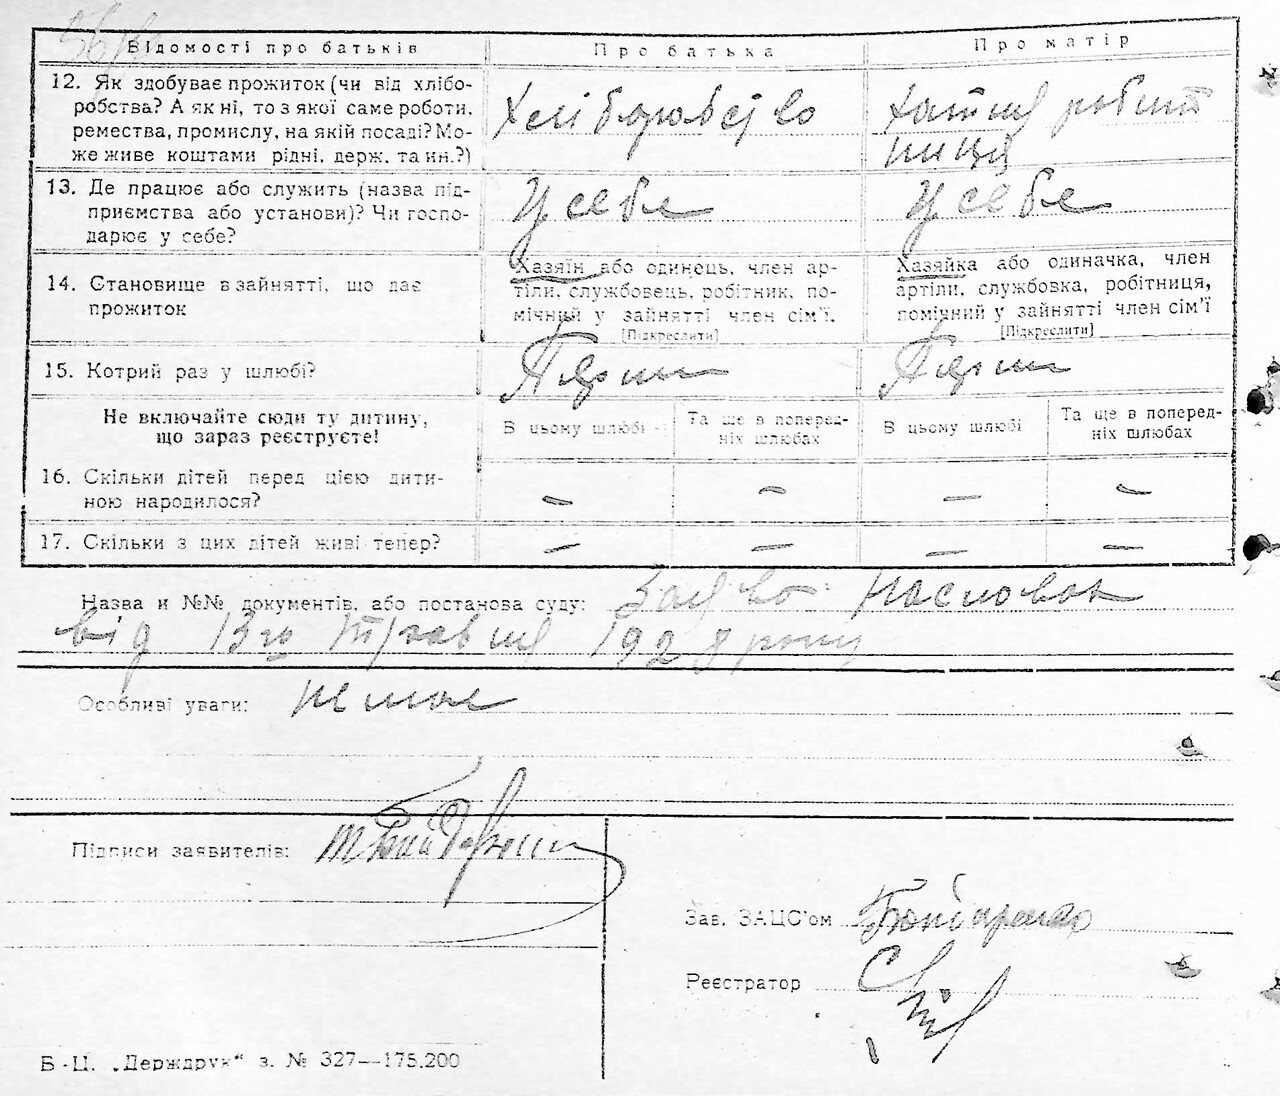 Відомості про батьків
Про батька
Про матір
12. Як здобуває прожиток (чи від хлібо-
робства? А як ні, то з якої саме роботи,
ремества, промислу, на якій посаді? Мо-
же живе коштами рідні, держ. та ин.?)
Хліборобство
Хатня робіт
ниця
13. Де працює або служить (назва під-
приємства або установи)? Чи госпо-
дарює у себе?
У себе
У себе
14. Становище в зайнятті, що дає
прожиток
Хазяїн або одинець, член ар-
тіли, службовець, робітник, по-
мічний у зайнятті член сім'ї.
[Підкреслити]
Хазяйка або одиначка, член
артіли, службовка, робітниця,
помічний у зайнятті член сім'ї
[Підкреслити]
15. Котрий раз у шлюбі?
Перши
Перши
Не включайте сюди ту дитину,
що зараз реєструєте!
В цьому шлюбі
Та ще в поперед-
ніх шлюбах
В цьому шлюбі
Та ще в поперед-
ніх шлюбах
16. Скільки дітей перед цією дити-
ною народилося?
— — — —
17. Скільки з цих дітей живі тепер?
— — — —
Назва и №№ документів, або постанова суду:
від 13го травня 1928 року
Особливі уваги: немає
Підписи заявителів:
Зав. ЗАЦС'ом Бондаренко
Реєстратор
Б-Ц. „Держдрук“ з. № 327—175.200